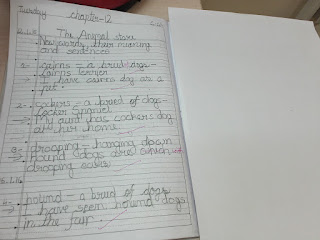 Tuesday chapter-12
The Animal store
New words, their meaning
and sentences
1- cairns - a bried dogs-
cairns terrier
I have cairns dog as a
pet.
2- cockers - a bried of dogs-
cocker Spaniel
My aunt has cockers dog
at her home.
3- drooping - hanging down
hound dogs are
drooping
hound - a bried of dogs
I have seen hound dogs
in the fair.